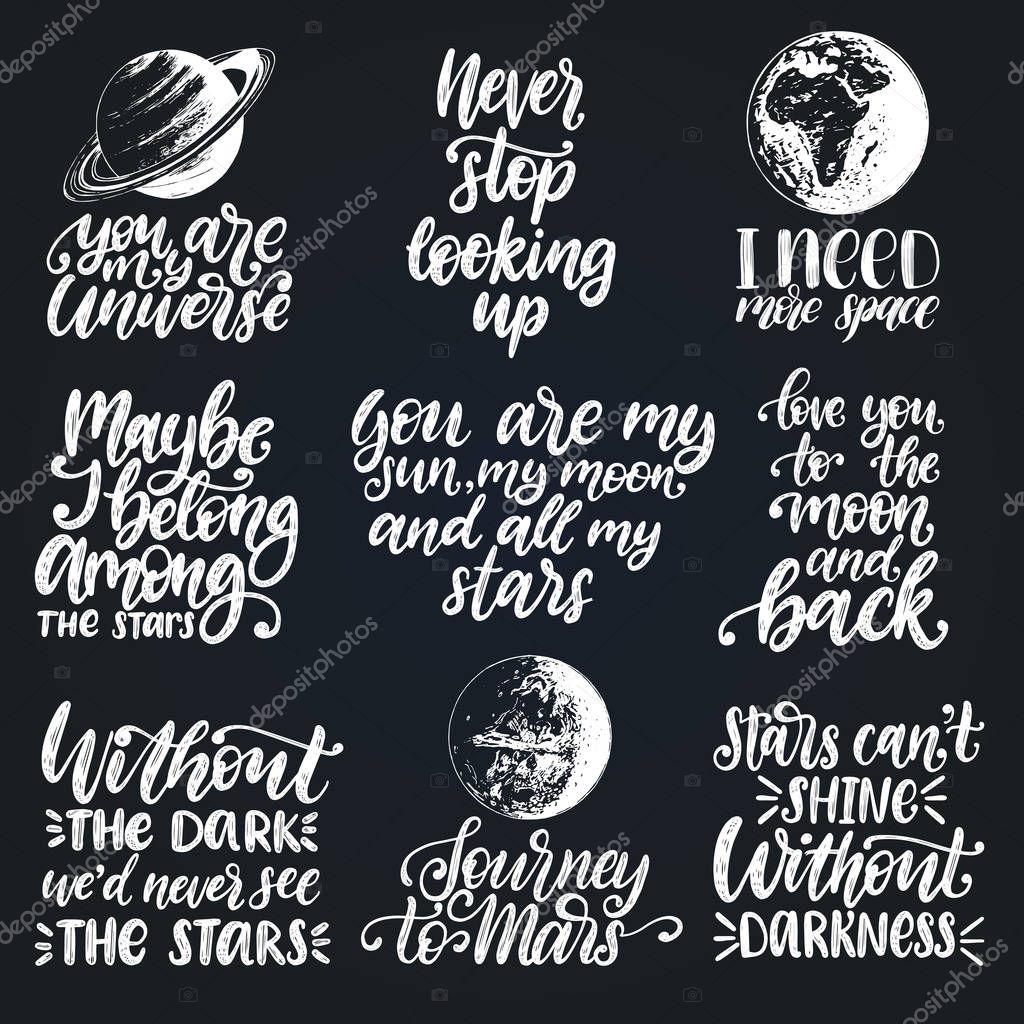 you are
my
universe
Never
stop
looking
up
I NEED
more space
Maybe
I belong
among
THE STARS
you are my
sun, my moon
and all my
stars
love you
to the
moon
and
back
Without
THE DARK
we'd never see
THE STARS
Journey
to Mars
Stars can't
SHINE
Without
DARKNESS
depositphotos